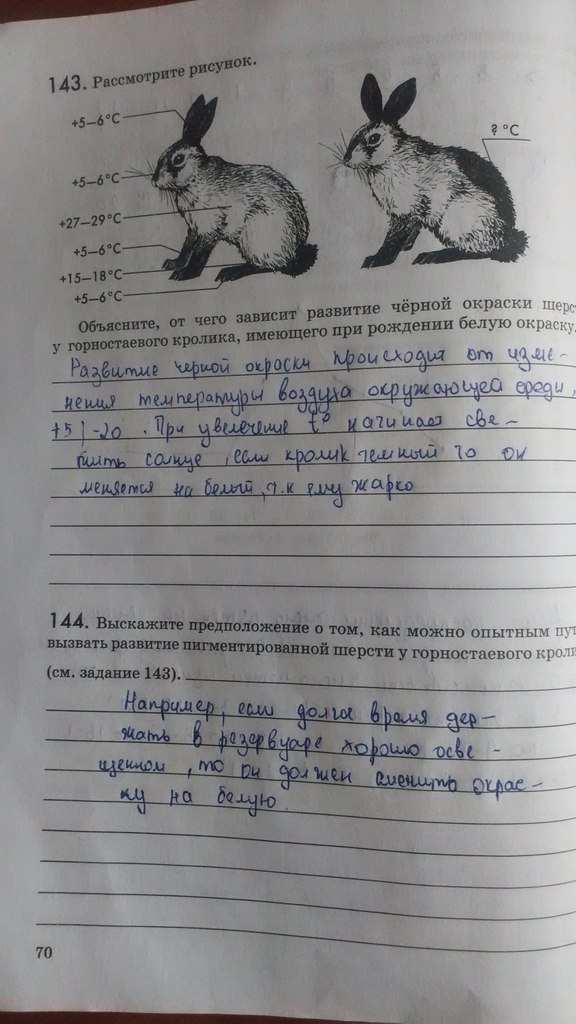 143. Рассмотрите рисунок.
+5–6°C
+5–6°C
+27–29°C
+5–6°C
+15–18°C
+5–6°C
? °C
Объясните, от чего зависит развитие чёрной окраски шерс
у горностаевого кролика, имеющего при рождении белую окраску.
Развитие черной окраски происходит от изме-
нения температуры воздуха окружающей среды,
+5 | -20. При увеличение t° начинает све-
тить солнце, если кролик темный то он
меняется на белый, т.к ему жарко
144. Выскажите предположение о том, как можно опытным пут
вызвать развитие пигментированной шерсти у горностаевого кроли
(см. задание 143).
Например, если долгое время дер-
жать в резервуаре хорошо осве-
щенном, то он должен сменить окрас-
ку на белую.
70